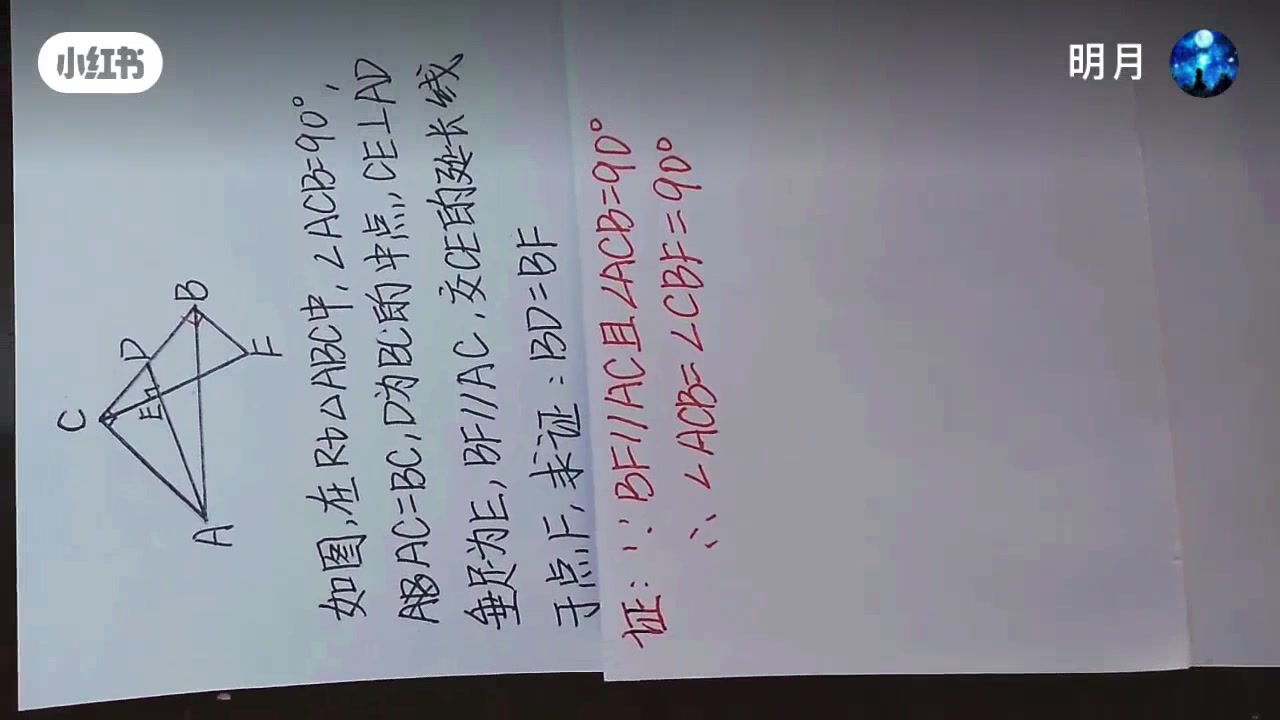 小红书
明月
C
D
B
E
A
F
如图,在Rt△ABC中,∠ACB=90°,
AC=BC,D为BC的中点,CE⊥AD
垂足为E,BF//AC,交CE的延长线
于点F,求证:BD=BF
证:∵BF//AC且∠ACB=90°
∴∠ACB=∠CBF=90°